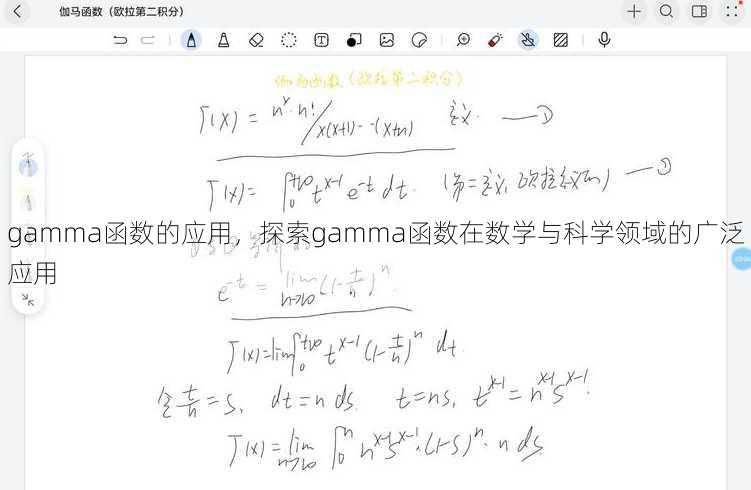 伽马函数（欧拉第二积分）
伽马函数（欧拉第二积分）
Γ(x) = n^x·n!/x(x+1)--(x+n) 定义. —①
Γ(x)= ∫_0^{+∞} t^{x-1} e^{-t} dt. (第二定义, 欧拉 —②
gamma函数的应用，探索gamma函数在数学与科学领域的广泛
应用
e^{-t} = lim_{n→∞} (1-t/n)^n.
Γ(x)=lim∫_0^{+∞} t^{x-1} (1-t/n)^n dt.
令t/n=s, dt=n ds. t=ns, t^{x-1}=n^{x-1}s^{x-1}.
Γ(x)=lim_{n→∞} ∫_0^n n^{x-1}s^{x-1}·(1-s)^n·n ds.